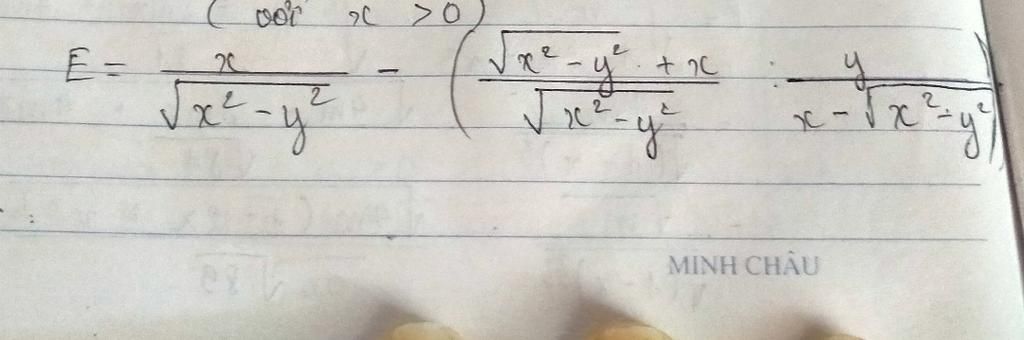 ( với x > 0 )
E = \frac{x}{\sqrt{x^2 - y^2}} - \left( \frac{\sqrt{x^2 - y^2} + x}{\sqrt{x^2 - y^2}} : \frac{y}{x - \sqrt{x^2 - y^2}} \right)
MINH CHÂU